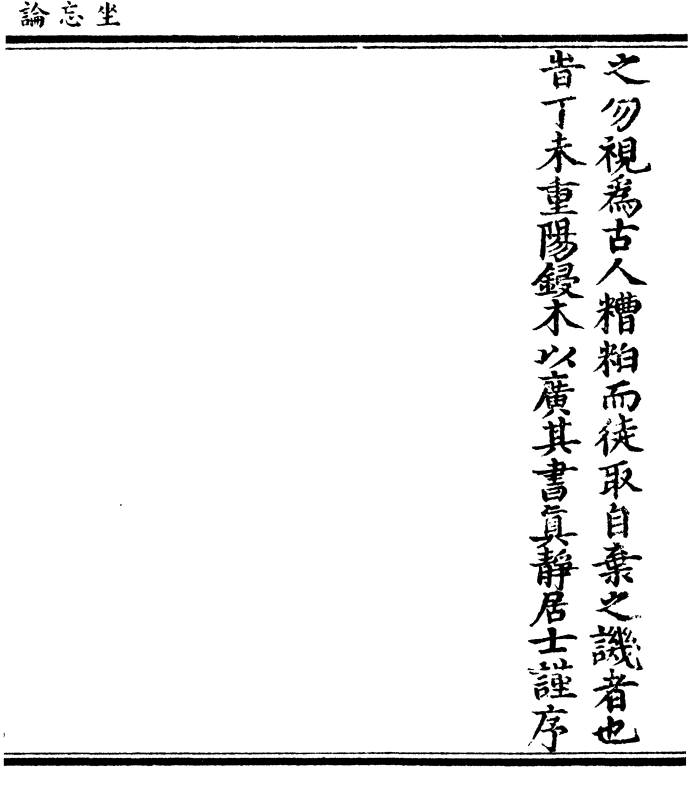 坐忘論
之勿視為古人糟粕而徒取自棄之譏者也
旹丁未重陽鋟木以廣其書眞靜居士謹序